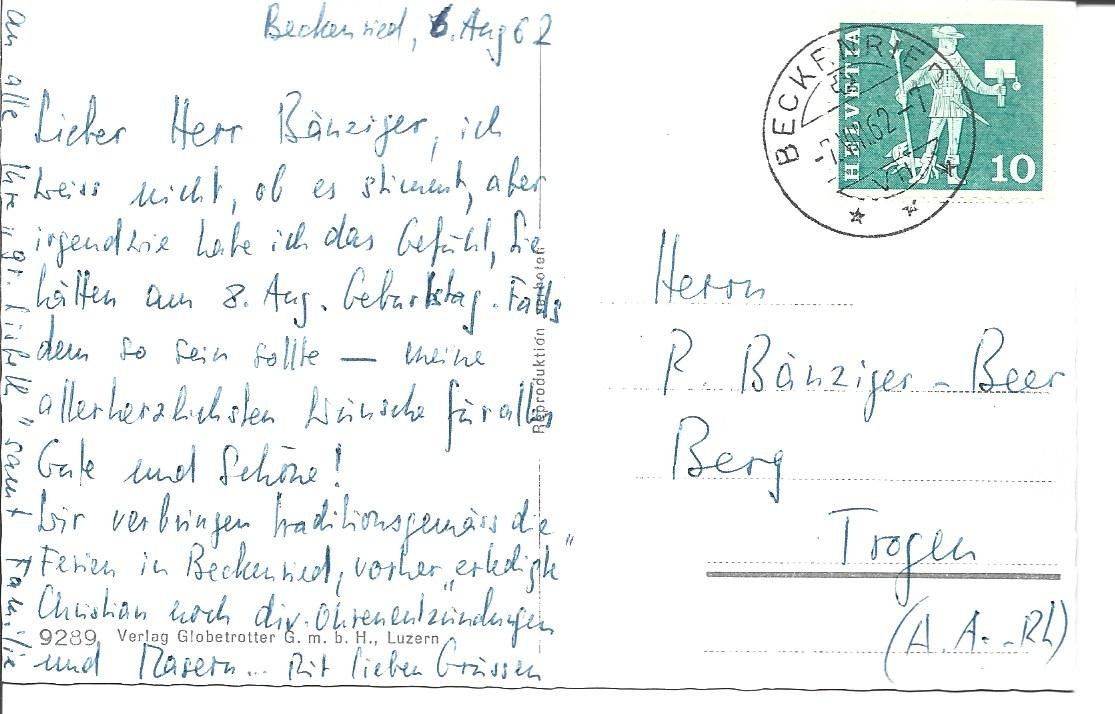 Beckenried, 6. Aug 62
Lieber Herr Bänziger, ich
weiss nicht, ob es stimmt, aber
irgendwie habe ich das Gefühl, Sie
hätten am 8. Aug. Geburtstag. Falls
dem so sein sollte — meine
allerherzlichsten Wünsche für alles
Gute und Schöne!
Wir verbringen traditionsgemäss die
Ferien in Beckenried, vorher „erledigte"
Christian noch div. Ohrenentzündungen
und Masern... Mit lieben Grüssen
an alle Ihre samt Familie
9289 Verlag Globetrotter G. m. b. H., Luzern
Reproduktion verboten
HELVETIA
10
BECKENRIED
-7.VIII.62-7
Herrn
P. Bänziger-Beer
Berg
Trogen
(A. A.-Rh)